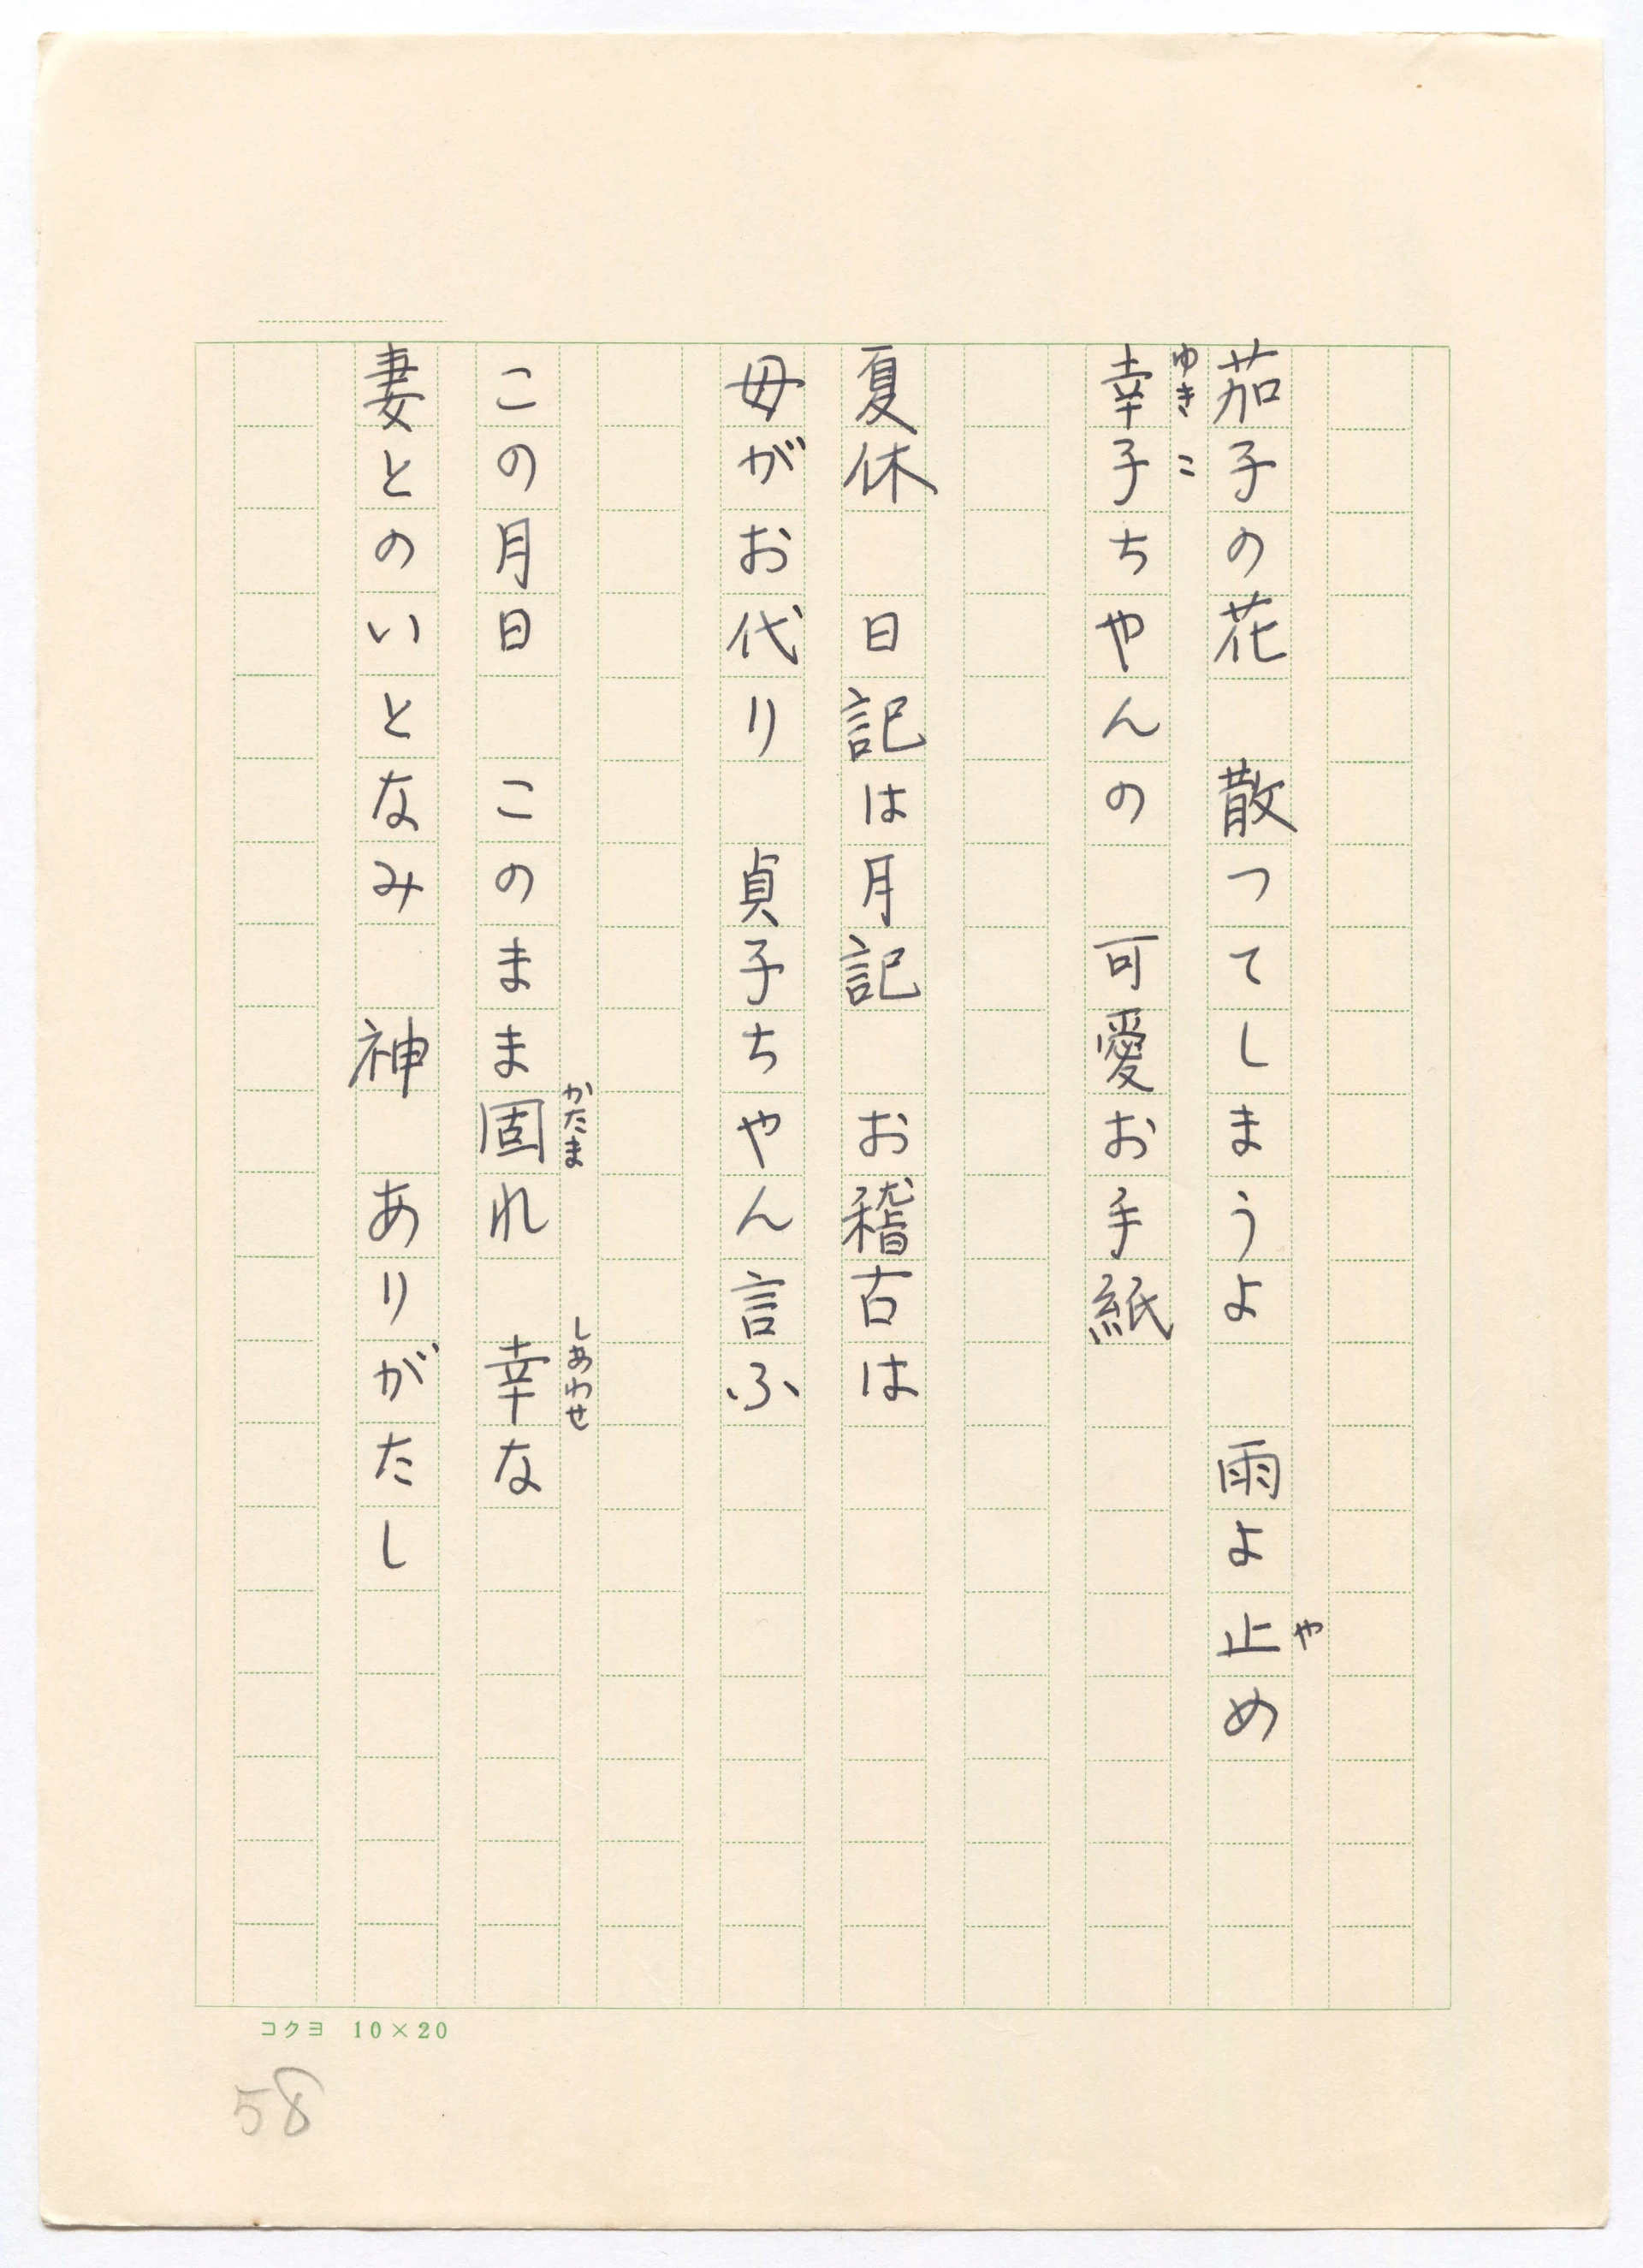 茄子の花　散つてしまうよ　雨よ止め
や
ゆきこ
幸子ちやんの　可愛お手紙
夏休　日記は月記　お稽古は
母がお代り　貞子ちやん言ふ
この月日　このまま固れ　幸な
かたま
しあわせ
妻とのいとなみ　神　ありがたし
コクヨ 10×20
58